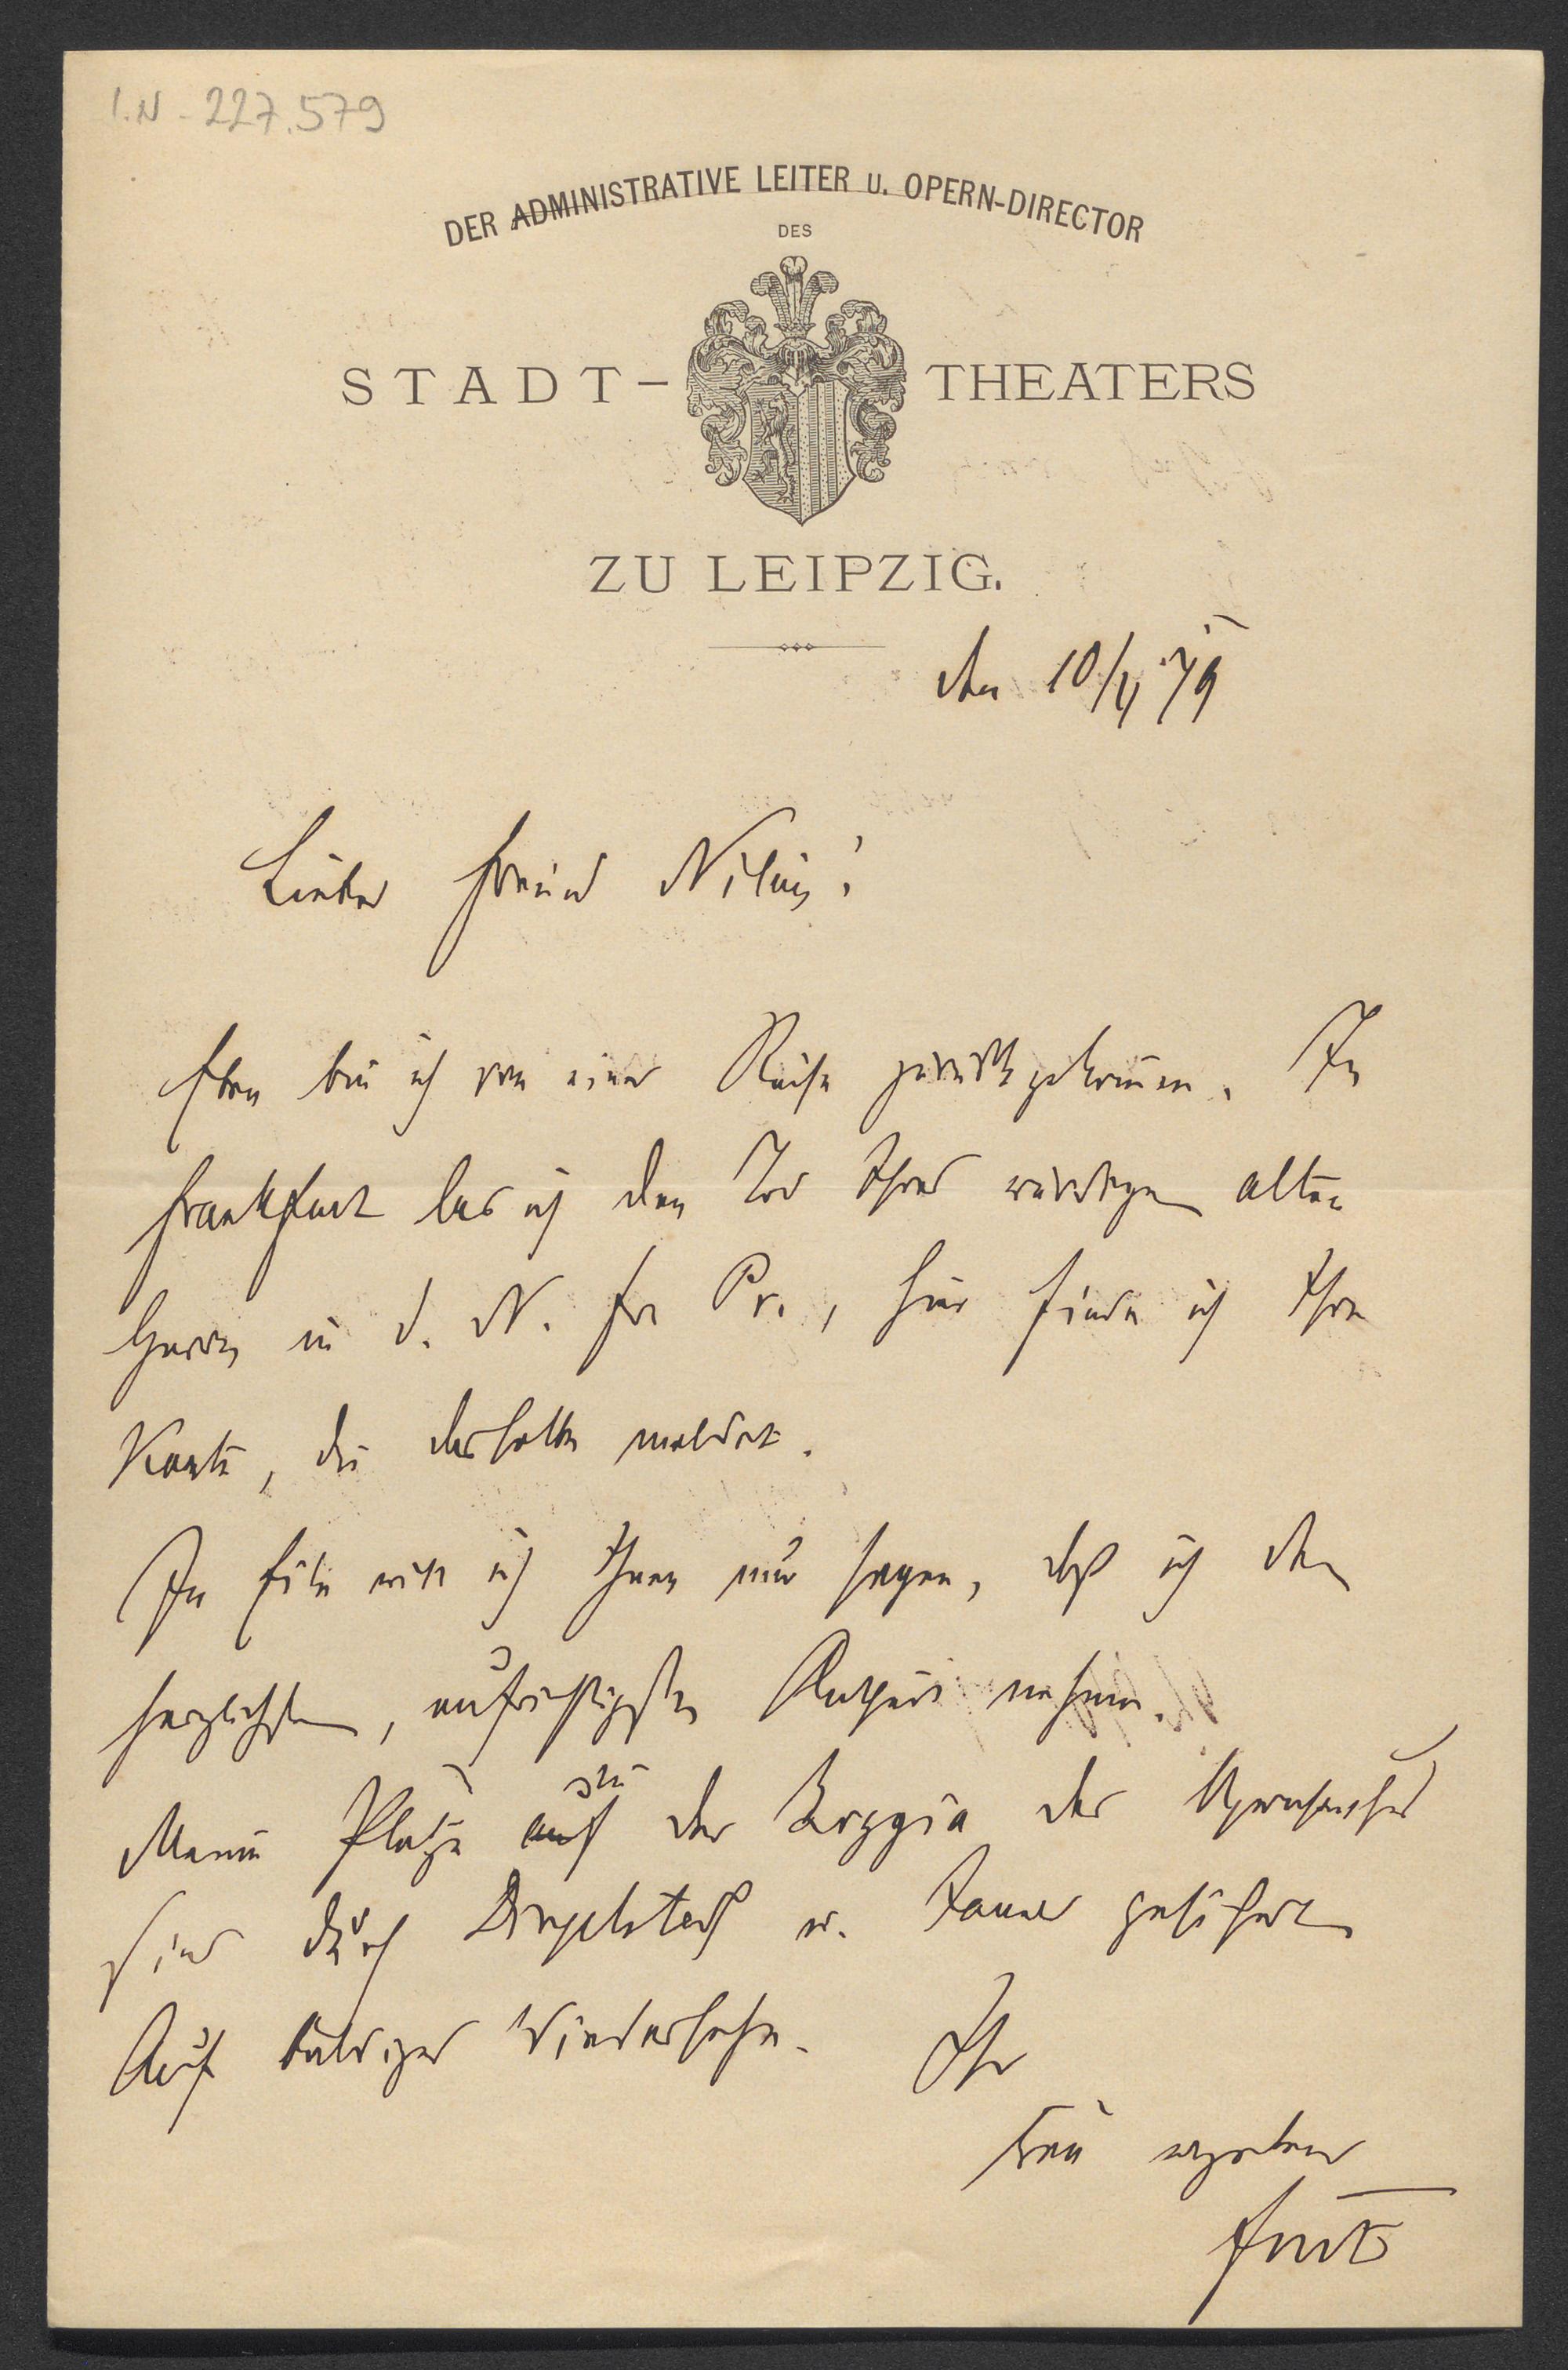 I.N - 227.579
DER ADMINISTRATIVE LEITER U. OPERN-DIRECTOR
DES
STADT- THEATERS
ZU LEIPZIG.
den 10/ 79
Lieber Freund Nilius!
Eben bin ich von einer Reise zurückgekommen. In
Frankfurt las ich den Tod Ihres würdigen alten
Herrn in d. N. fr Pr., hier finde ich Ihre
Karte, die dasselbe meldet.
In Eile will ich Ihnen nur sagen, daß ich den
herzlichsten, aufrichtigsten Antheil nehme.
Meine Plätze auf zu der Loggia des Opernhauses
sind durch Dingelstedt u. Jauner gesichert
Auf baldiges Wiedersehen. Ihr
treu ergebener